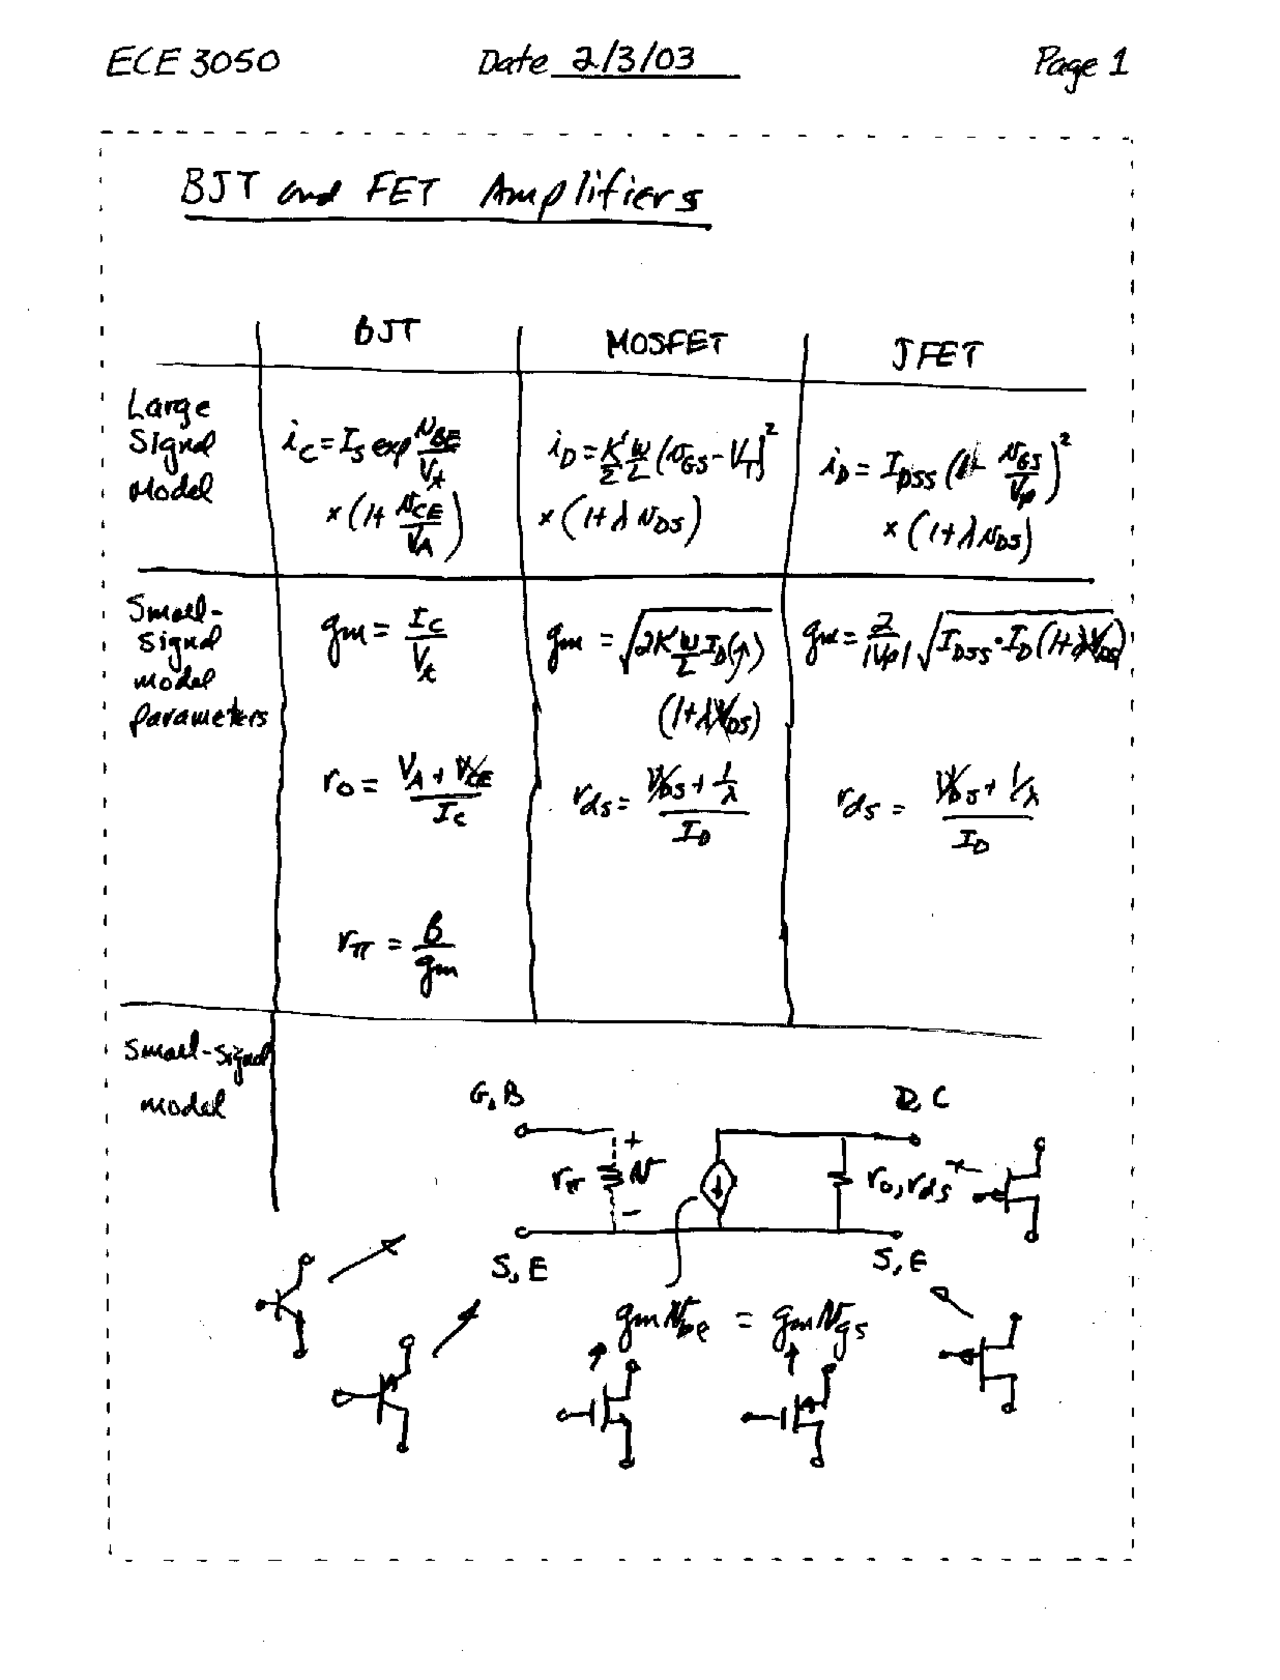 ECE 3050 Date 2/3/03 Page 1
BJT and FET Amplifiers
BJT MOSFET JFET
Large
Signal
Model
i_C = I_S exp v_BE/V_t
× (1 + v_CE/V_A)
i_D = K'/2 W/L (v_GS - V_T)^2
× (1 + λ v_DS)
i_D = I_DSS (1 - v_GS/V_p)^2
× (1 + λ v_DS)
Small-
signal
model
parameters
g_m = I_C/V_t
r_o = (V_A + V_CE)/I_C
r_π = β/g_m
g_m = √(2K' W/L I_D(↗))
(1 + λV_DS)
r_ds = (V_DS + 1/λ)/I_D
g_m = 2/|V_p| √(I_DSS · I_D (1 + λV_DS))
r_ds = (V_DS + 1/λ)/I_D
Small-signal
model
G, B D, C
r_π + v - r_o, r_ds
S, E S, E
g_m v_be = g_m v_gs